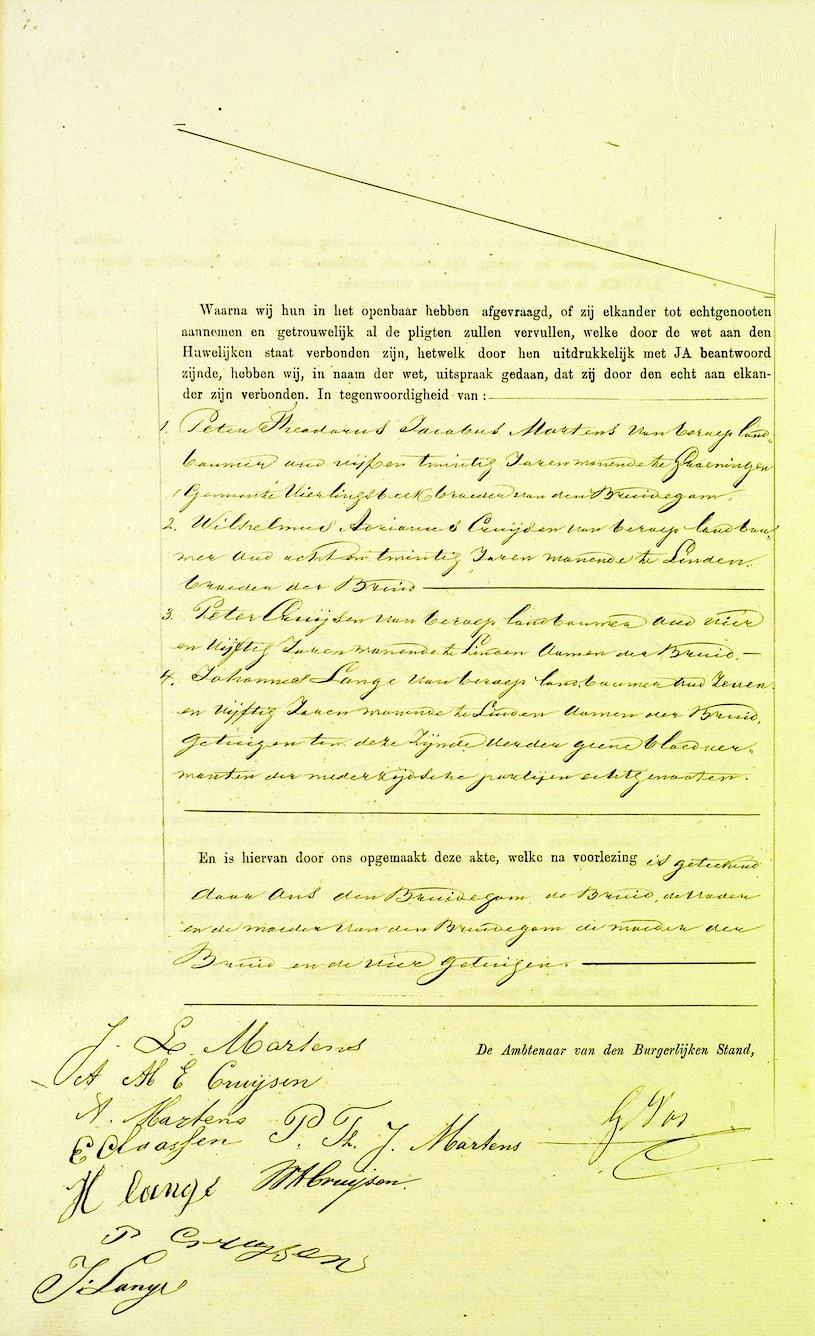 Waarna wij hun in het openbaar hebben afgevraagd, of zij elkander tot echtgenooten
aannemen en getrouwelijk al de pligten zullen vervullen, welke door de wet aan den
Huwelijken staat verbonden zijn, hetwelk door hen uitdrukkelijk met JA beantwoord
zijnde, hebben wij, in naam der wet, uitspraak gedaan, dat zij door den echt aan elkan-
der zijn verbonden. In tegenwoordigheid van :
1. Peter Theodorus Jacobus Martens van beroep land-
bouwer oud vijf en twintig Jaren wonende te Groeningen
Gemeente Vierlingsbeek broeder van den Bruidegom.
2. Wilhelmus Adrianus Cruijsen van beroep landbou-
wer oud acht en twintig Jaren wonende te Linden.
broeder der Bruid
3. Peter Cruijsen van beroep landbouwer oud vier
en vijftig Jaren wonende te Linden Oomen der Bruid.
4. Johannes Lange van beroep landbouwer oud Zeven
en vijftig Jaren wonende te Linden Oomen der Bruid,
getuigen ten deze Zijnde verder geene bloedver-
wanten der wederzijdsche partijen echtgenooten.
En is hiervan door ons opgemaakt deze akte, welke na voorlezing is geteekend
door Ons den Bruidegom, de Bruid, de vader
en de moeder van den Bruidegom de moeder der
Bruid en de vier getuigen.
De Ambtenaar van den Burgerlijken Stand,
J. L. Martens
A M E Cruijsen
A. Martens
G Vos
E Claassen
P. Th. J. Martens
H lange
WACruijsen.
P Cruijsen
J. Lange